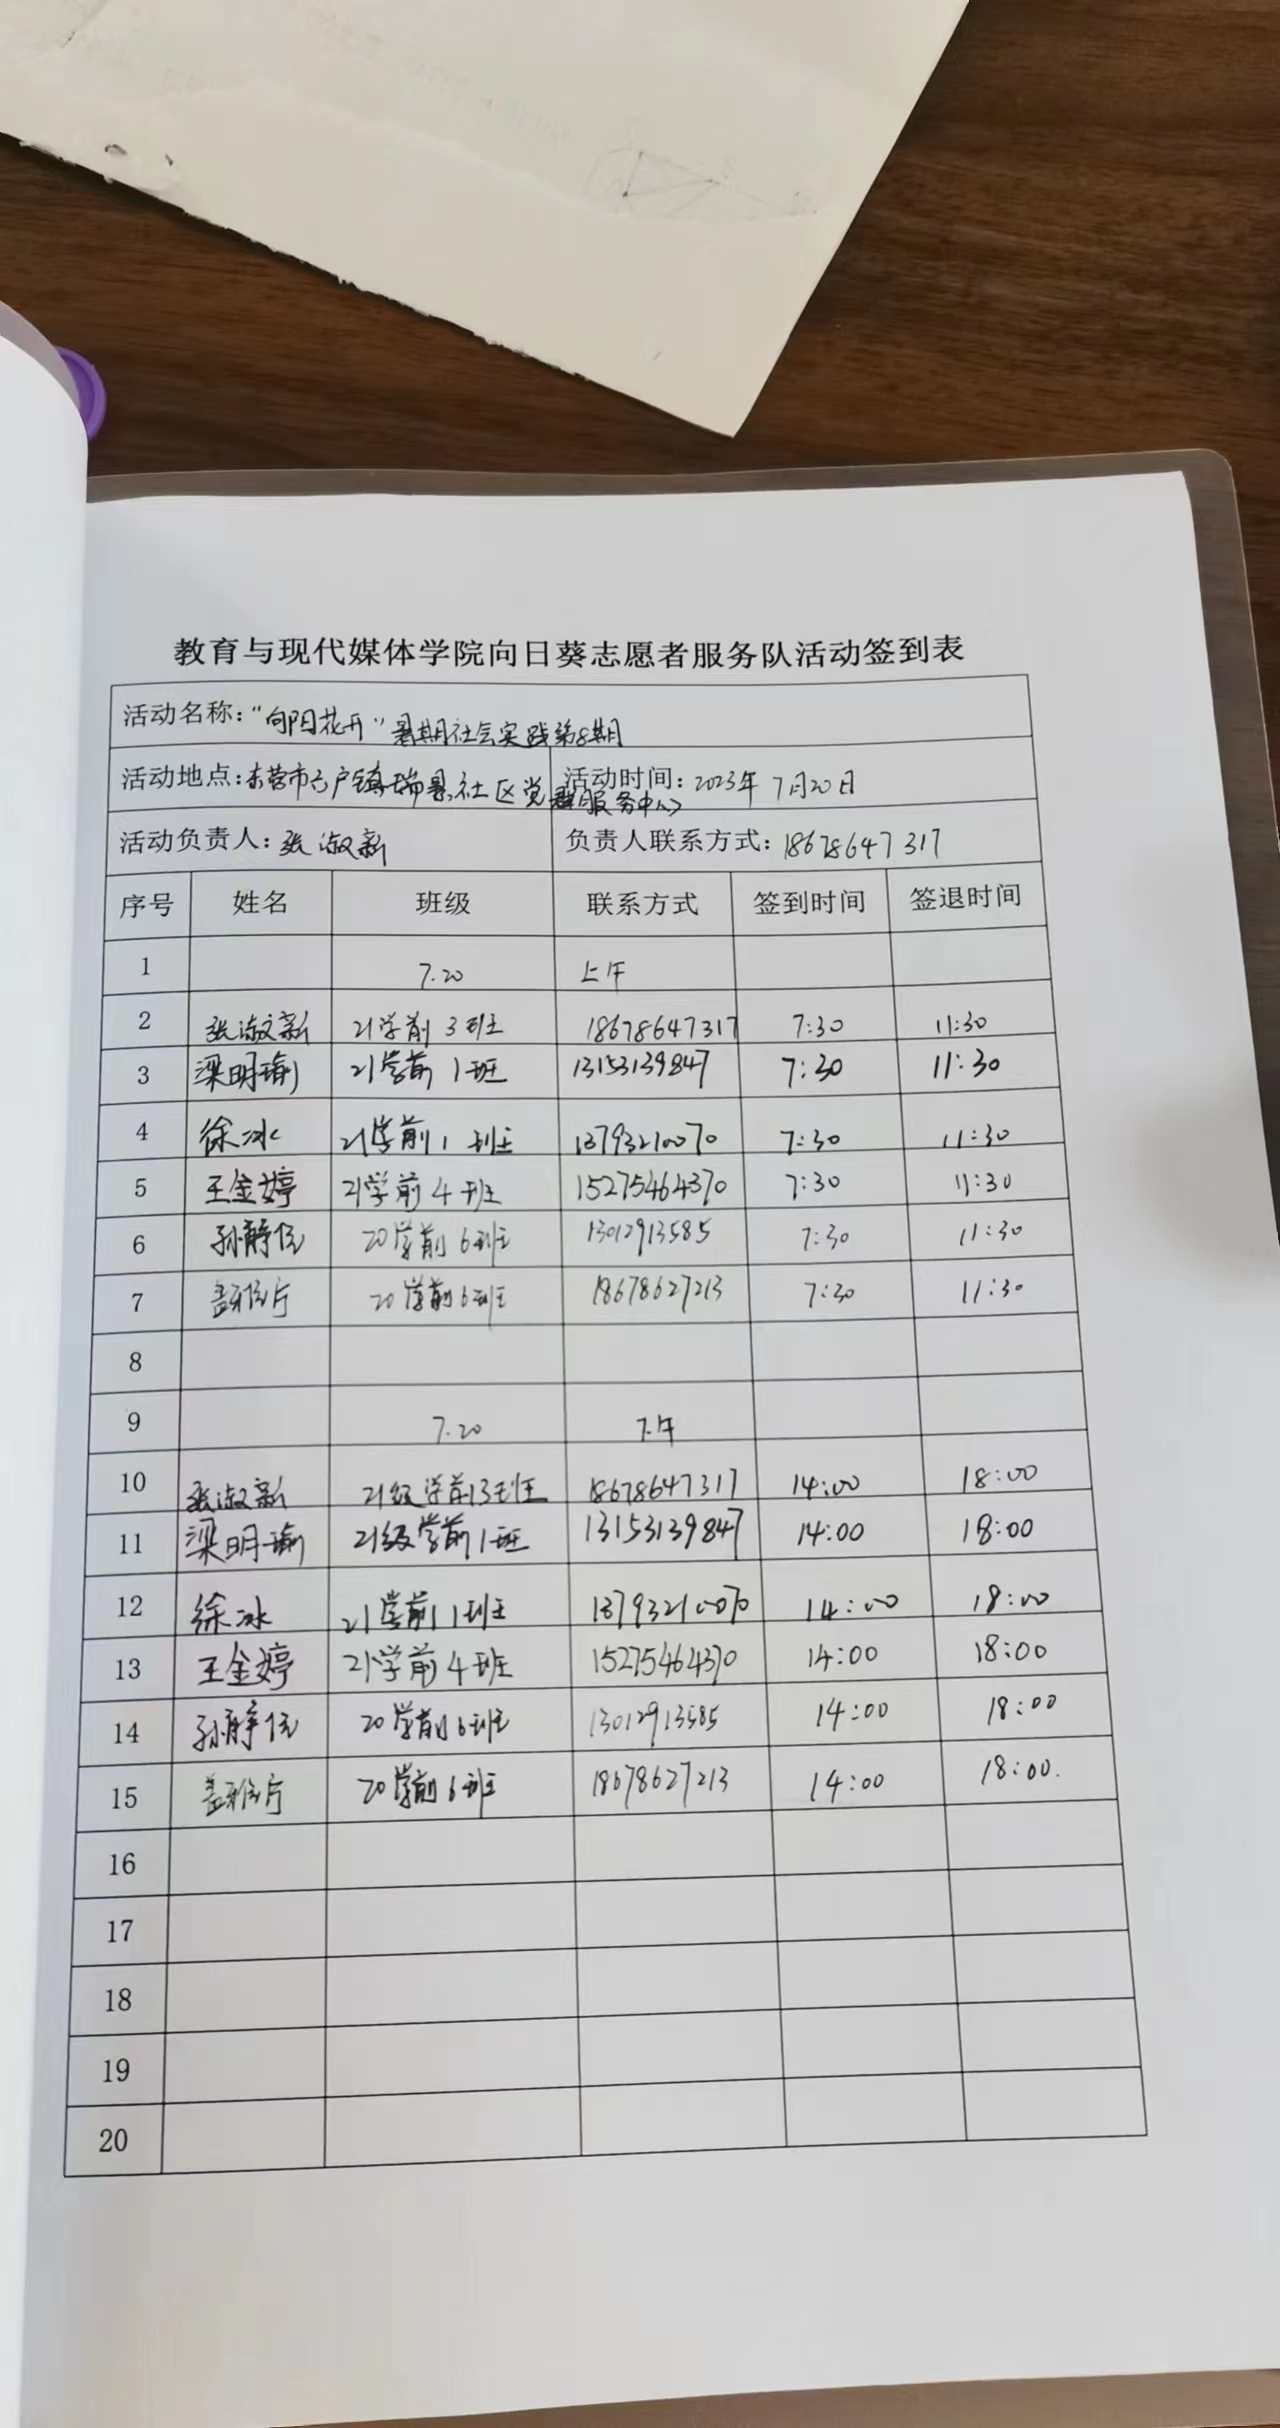 教育与现代媒体学院向日葵志愿者服务队活动签到表
活动名称："向阳花开"暑期社会实践第8期
活动地点：东营市六户镇瑞景社区党群服务中心 活动时间：2023年7月20日
活动负责人：张淑新 负责人联系方式：18678647317
序号 姓名 班级 联系方式 签到时间 签退时间
1 7.20 上午
2 张淑新 21学前3班 18678647317 7:30 11:30
3 梁明瑜 21学前1班 13153139847 7:30 11:30
4 徐冰 21学前1班 13793210070 7:30 11:30
5 王金婷 21学前4班 15275464370 7:30 11:30
6 孙静 20学前6班 13012913585 7:30 11:30
7 20学前6班 18678627213 7:30 11:30
8
9 7.20 下午
10 张淑新 21级学前3班 18678647317 14:00 18:00
11 梁明瑜 21级学前1班 13153139847 14:00 18:00
12 徐冰 21学前1班 13793210070 14:00 18:00
13 王金婷 21学前4班 15275464370 14:00 18:00
14 孙静 20学前6班 13012913585 14:00 18:00
15 20学前6班 18678627213 14:00 18:00.
16
17
18
19
20